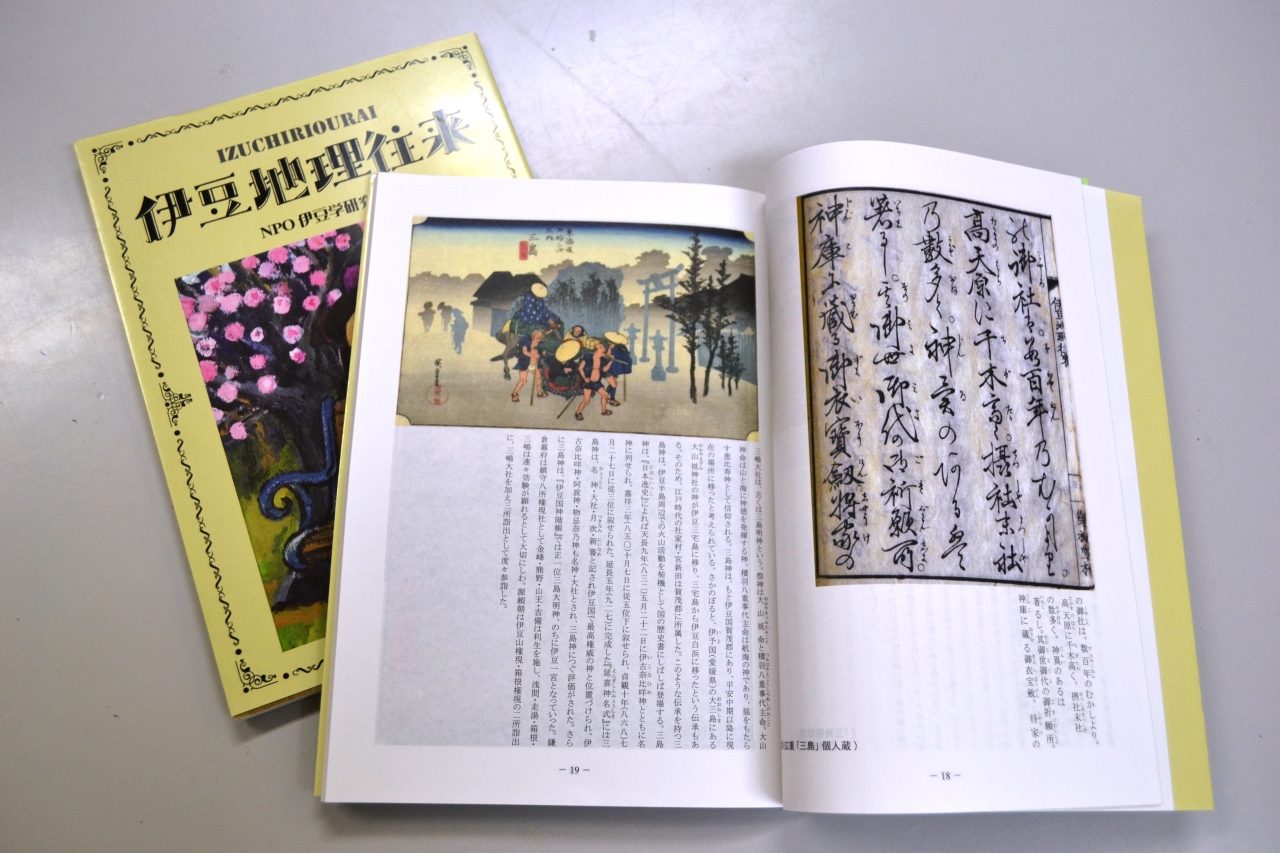 IZUCHIRIOURAI
伊豆地理往来
NPO 伊豆学研究
の御社は、数百年のむかしより。
高天原に千木高く。摂社末社
の数多く、神異のあるは
著るし其御世御代の御祈願所。
神庫に蔵る御衣宝敏。将家の
広重「三島」個人蔵)
― 18 ―
東海道
五拾三次
之内
三島
三嶋大社は、古くは三島明神という。祭神は大山祇命と積羽八重事代主命。大山
神命は山と海に神徳を発揮する神、積羽八重事代主命は航海の神であり、福をもたら
す恵比寿神として信仰される。三島神は、もと伊豆国賀茂郡にあり、平安中期以降に現
在の場所に移ったと考えられている。さかのぼると、伊予国(愛媛県)の大三島にある
大山祇神社の神が伊豆三宅島に移り、三宅島から伊豆白浜に移ったという伝承もあ
る。そのため、江戸時代の社家村・宮新田は賀茂郡に所属した。このような伝承を持つ三
島神は、伊豆半島周辺での火山活動を契機として国の歴史書にしばしば登場する。三島
神は、『日本逸史』によれば天長九年(八三二)五月二十二日に伊古奈比咩神とともに名
神に列せられ、嘉祥三年(八五〇)十月七日に従五位下に叙せられ、貞観十年(八六八)七
月二十七日に従三位に叙せられた。延長五年(九二七)に完成した『延喜神名式』には三
島神は、名神・大社・月次・新嘗と記され伊豆国で最高権威の神と位置づけられ、伊
古奈比咩神・阿波神・物忌奈乃神も名神・大社とされ、三島神につぐ評価がされた。さら
に三島神は、『伊豆国神階帳』では正一位三島大明神、のちに伊豆一宮となっていった。鎌
倉幕府は鎮守八所権現社として金峰・熊野・山王・吉備は利生を施し、浅間・走湯・箱根・
三嶋は連々効験が顕れるとして大切にしわ、源頼朝は伊豆山権現・箱根権現の二所詣出
に、三嶋大社を加え三所詣出として度々参詣した。
― 19 ―